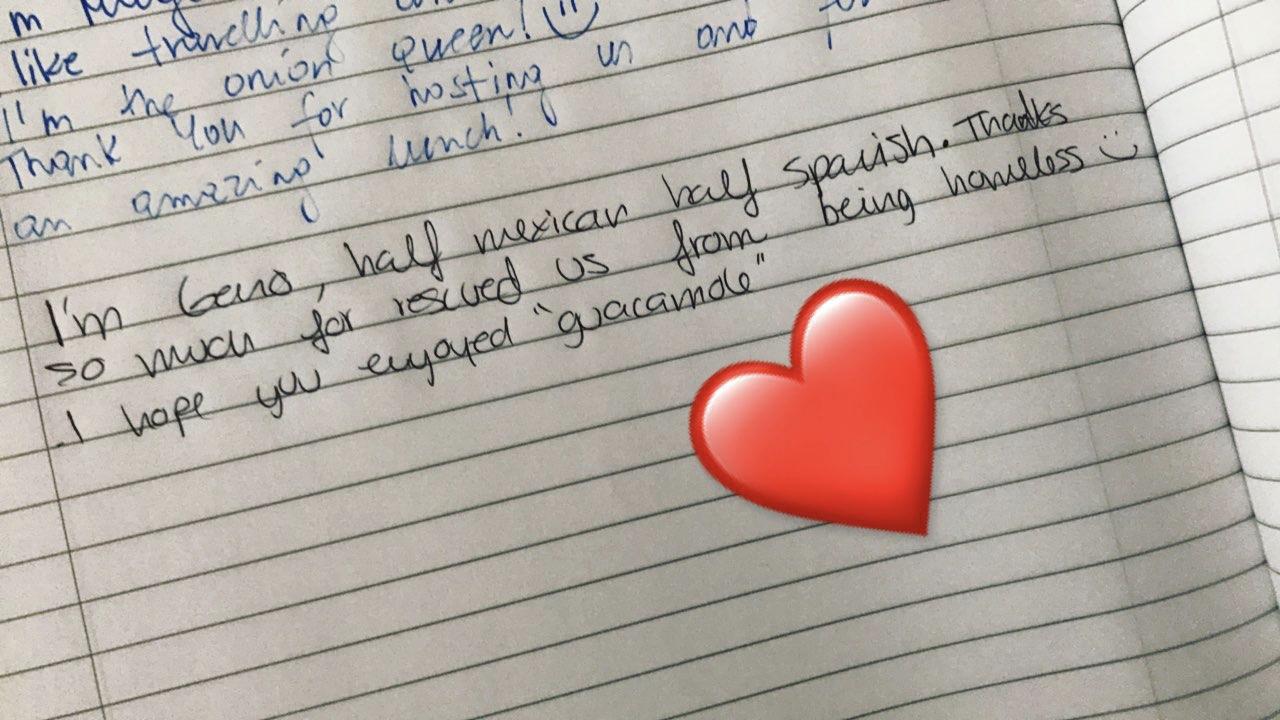 like travelling
I'm the onion queen!
Thank you for hosting us and for
an amazing lunch!
I'm Geno, half mexican half spanish. Thanks
so much for rescued us from being homeless :)
I hope you enjoyed "guacamole"